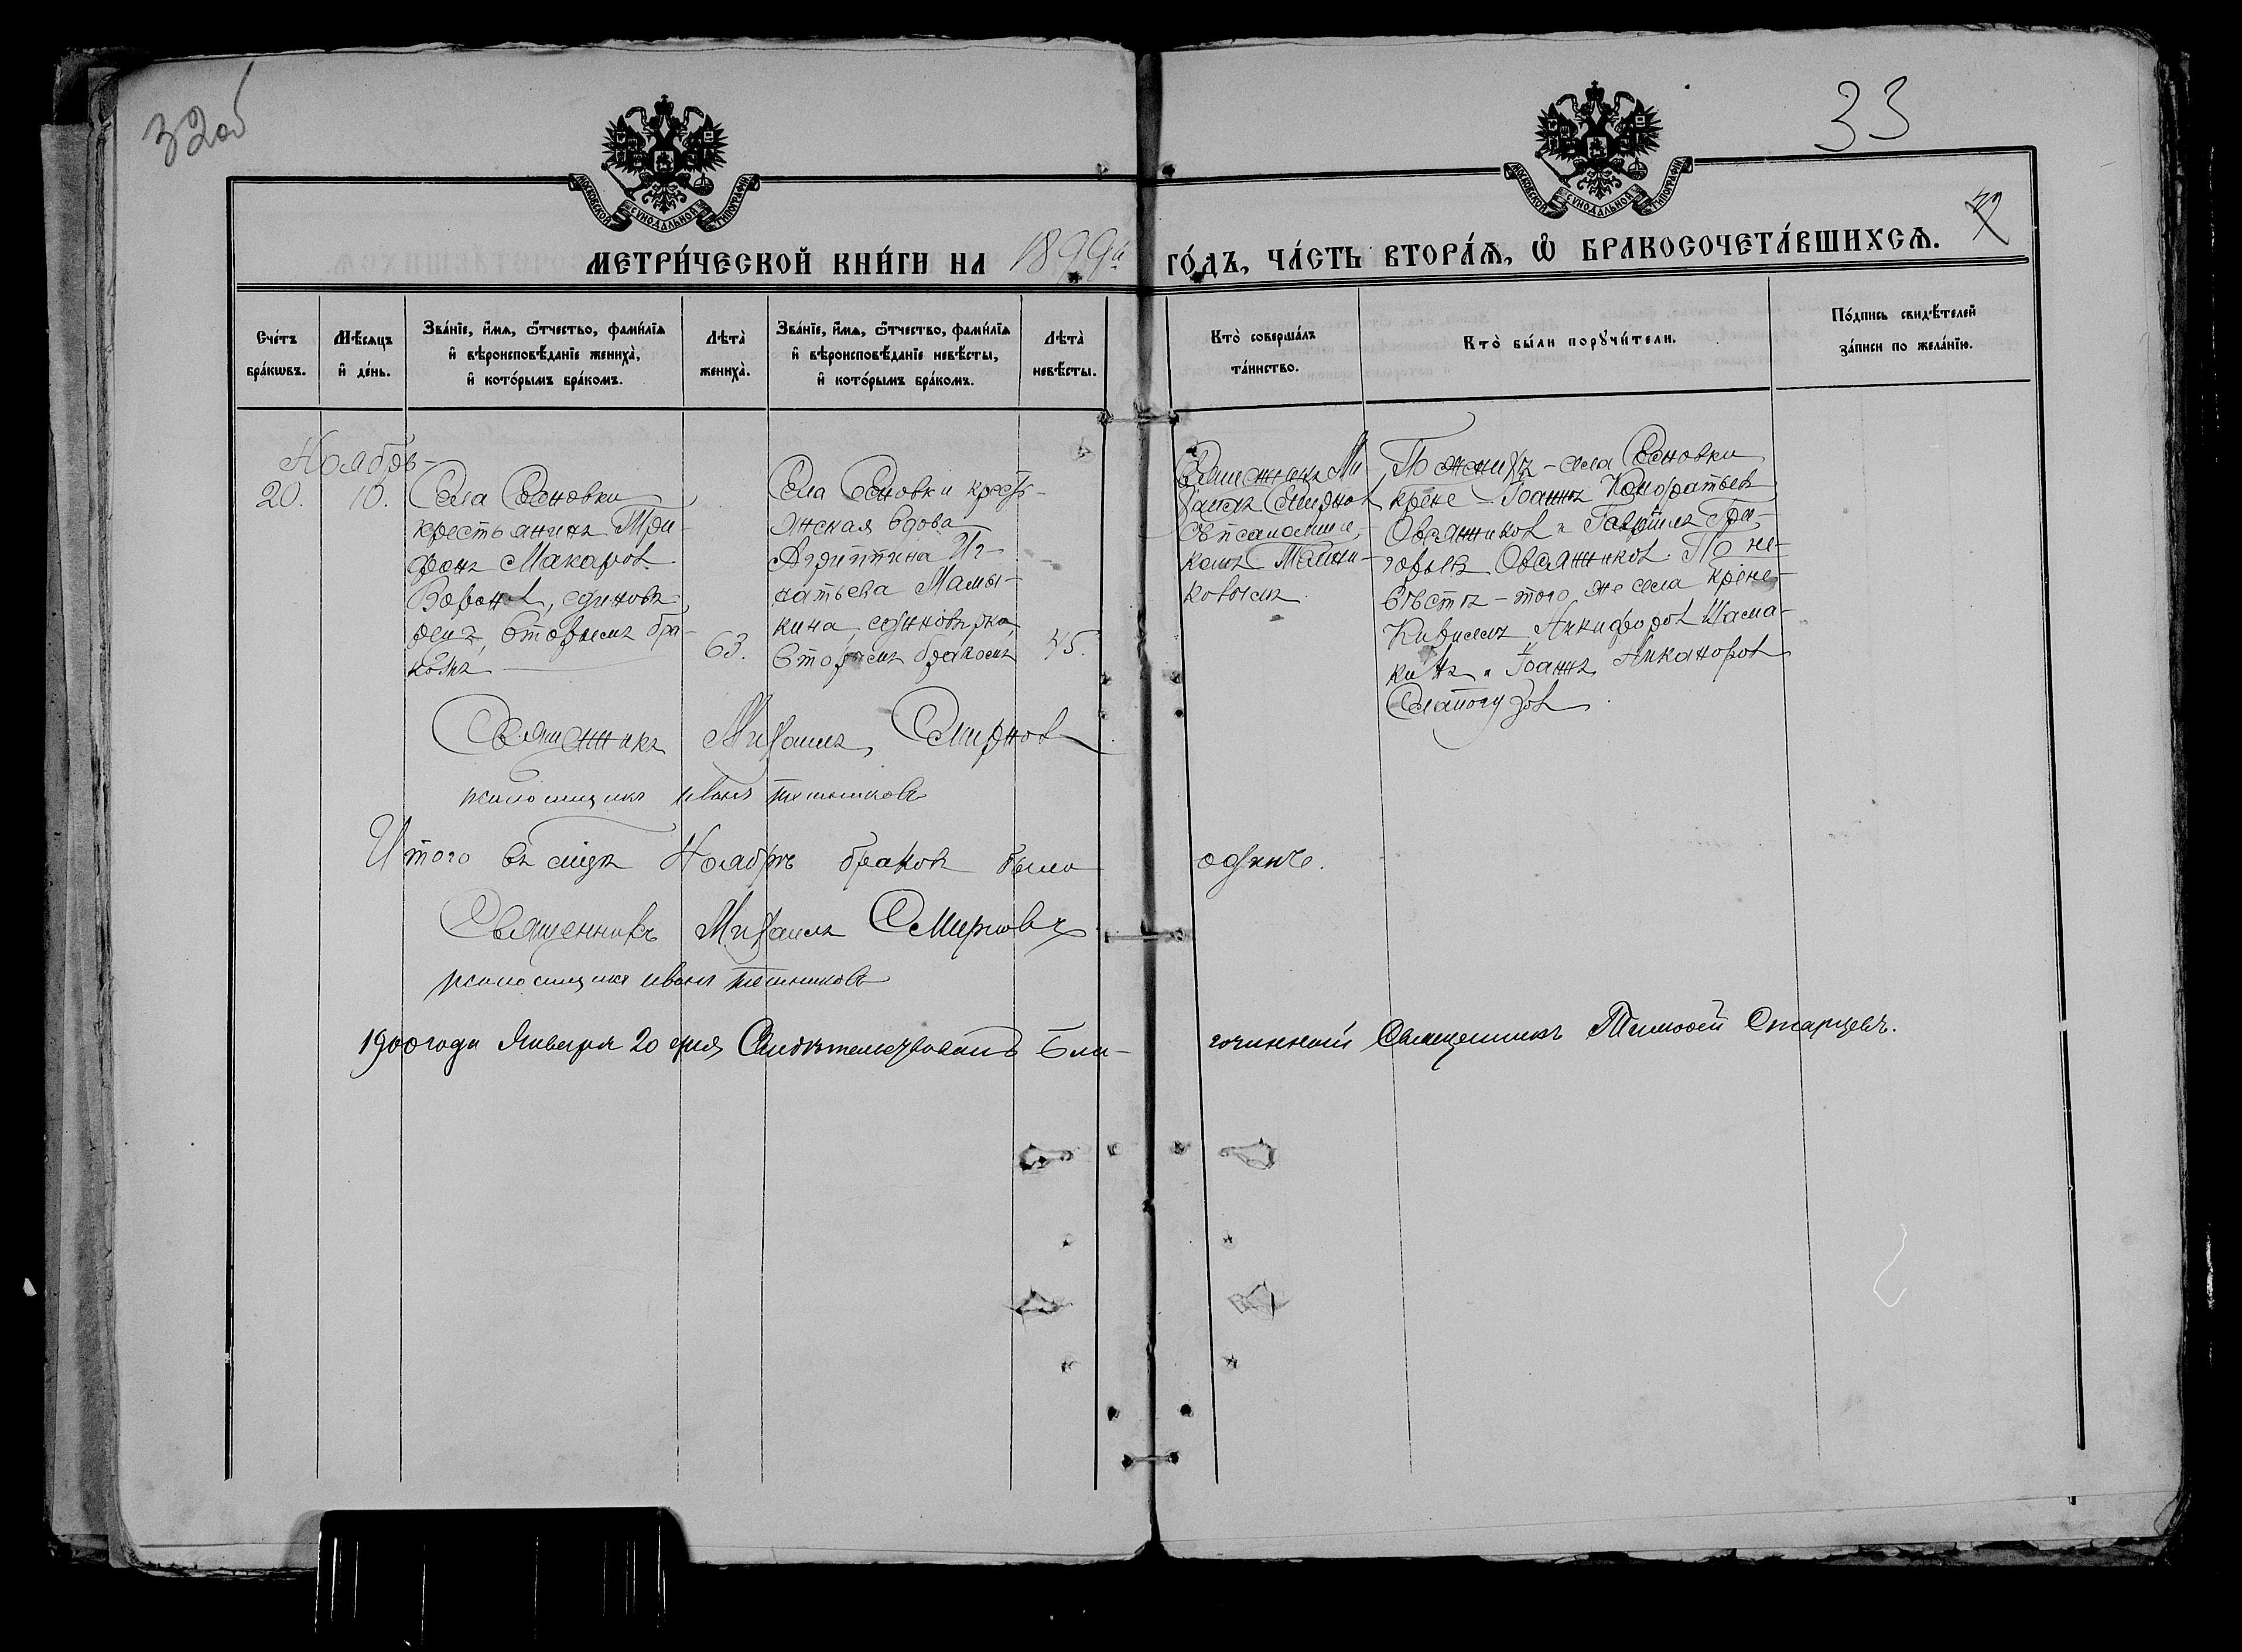 32об
33
МОСКОВСКОЙ СѴНОДАЛЬНОЙ ТИПОГРАФІИ
МОСКОВСКОЙ СѴНОДАЛЬНОЙ ТИПОГРАФІИ
МЕТРИ́ЧЕСКОЙ КНИ́ГИ НА 1899й ГО́ДЪ, ЧА́СТЬ ВТОРА́Ѧ, Ѽ БРАКОСОЧЕТА́ВШИХСѦ.
Сче́тъ
бра́кѡвъ.
Мѣ́сѧцъ
и҆ де́нь.
Зва́нїе, и҆́мѧ, ѻ҆́тчество, фами́лїѧ
и҆ вѣроисповѣ́данїе жениха̀,
и҆ кото́рымъ бра́комъ.
Лѣта̀
жениха̀.
Зва́нїе, и҆́мѧ, ѻ҆́тчество, фами́лїѧ
и҆ вѣроисповѣ́данїе невѣ́сты,
и҆ кото́рымъ бра́комъ.
Лѣта̀
невѣ́сты.
Кто̀ соверша́лъ
та́инство.
Кто̀ бы́ли порꙋчи́тели.
По́дпись свидѣ́телей
за́писи по жела́нїю.
Ноябрь
20.
10.
Села Сосновки
крестьянинъ Три-
фонъ Макаровъ
Воронов, единовѣ-
рецъ, вторымъ бра-
комъ
63.
Села Сосновки кресть-
янская вдова
Агриппина Иг-
натьева Мамы-
кина, единовѣрка,
вторымъ бракомъ
45.
Священникъ Ми-
хаилъ Смирнов
съ псаломщи-
комъ
ковымъ
По женихѣ – села Сосновки
крѣне Іоаннъ Кондратьев
Овсянников и Гавріилъ Гри-
горьевъ Овсянников. По не-
вѣстѣ – того же села крѣне
Кириллъ Никифоров Шама-
кинъ и Іоаннъ Никаноров
Священникъ Михаилъ Смирнов
псаломщикъ Иванъ
Итого въ мцѣ Ноябрѣ браковъ было одинъ.
Священникъ Михаилъ Смирновъ
псаломщикъ Иванъ
1900 года Января 20 дня Свидѣтельствовалъ Бла-
гочинный Священникъ Тимоѳей Старцевъ.